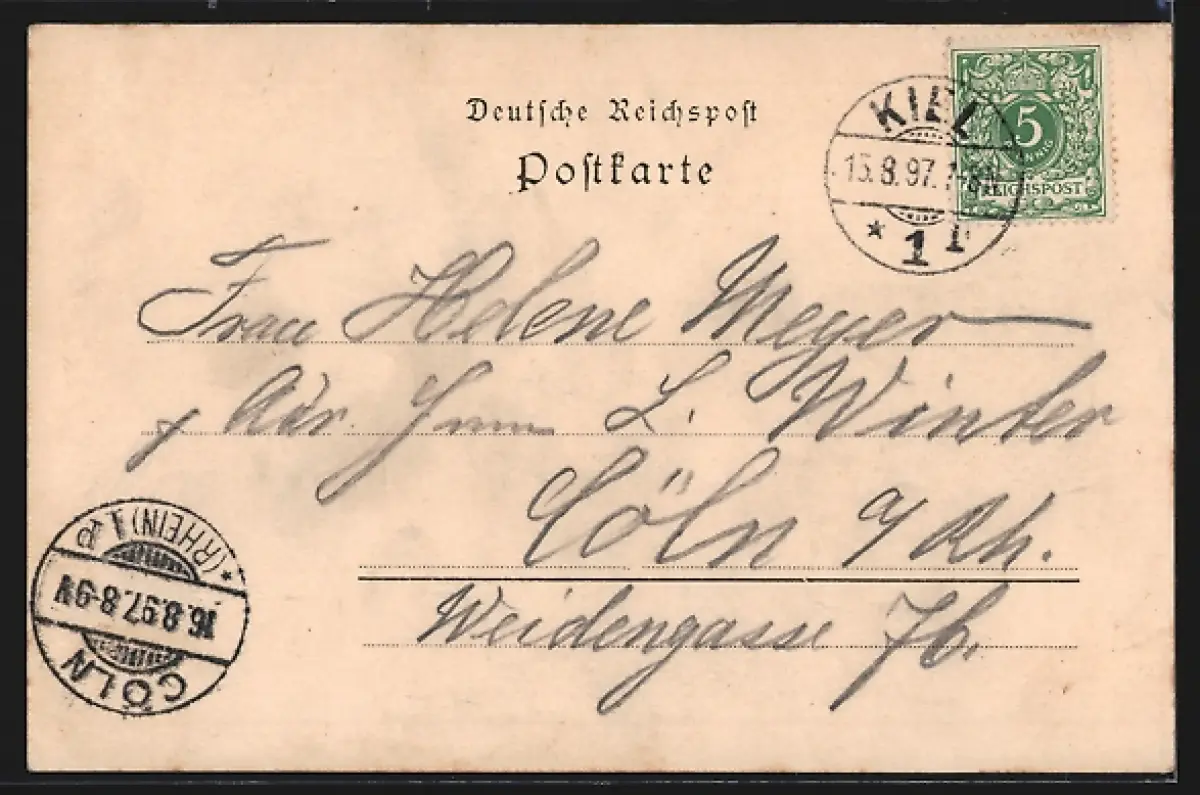 Deutſche Reichspoſt
Poſtkarte
KIEL
15.8.97.
* 1 I
5
PFENNIG
REICHSPOST
Frau Helene Meyer
Adr. L. Winter
Cöln a/Rh.
Weidengasse 76.
CÖLN
16.8.97. 8-9V
* (RHEIN) 1 P